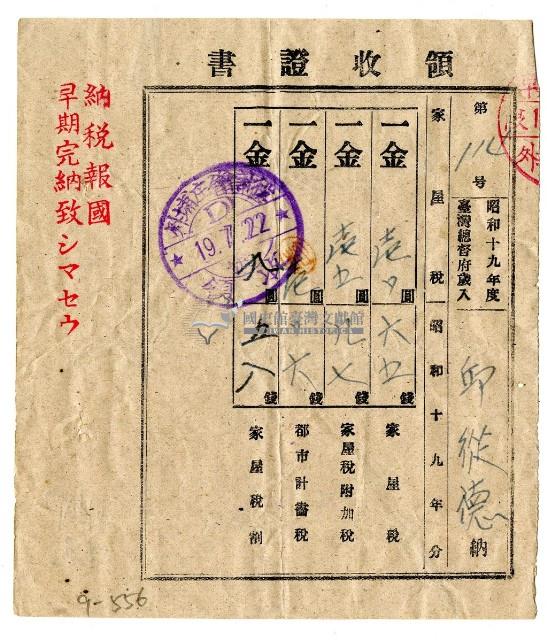 領收證書
第 號
昭和十九年度
臺灣總督府歲入
邱從德 納
家屋稅 昭和十九年分
一金 圓 六五錢 家屋稅
一金 圓 九七錢 家屋稅附加稅
一金 圓 六錢 都市計畫稅
一金 八圓 五八錢 家屋稅割
D
19.7.22
國史館臺灣文獻館
TAIWAN HISTORICA
納稅報國
早期完納致シマセウ
9-556